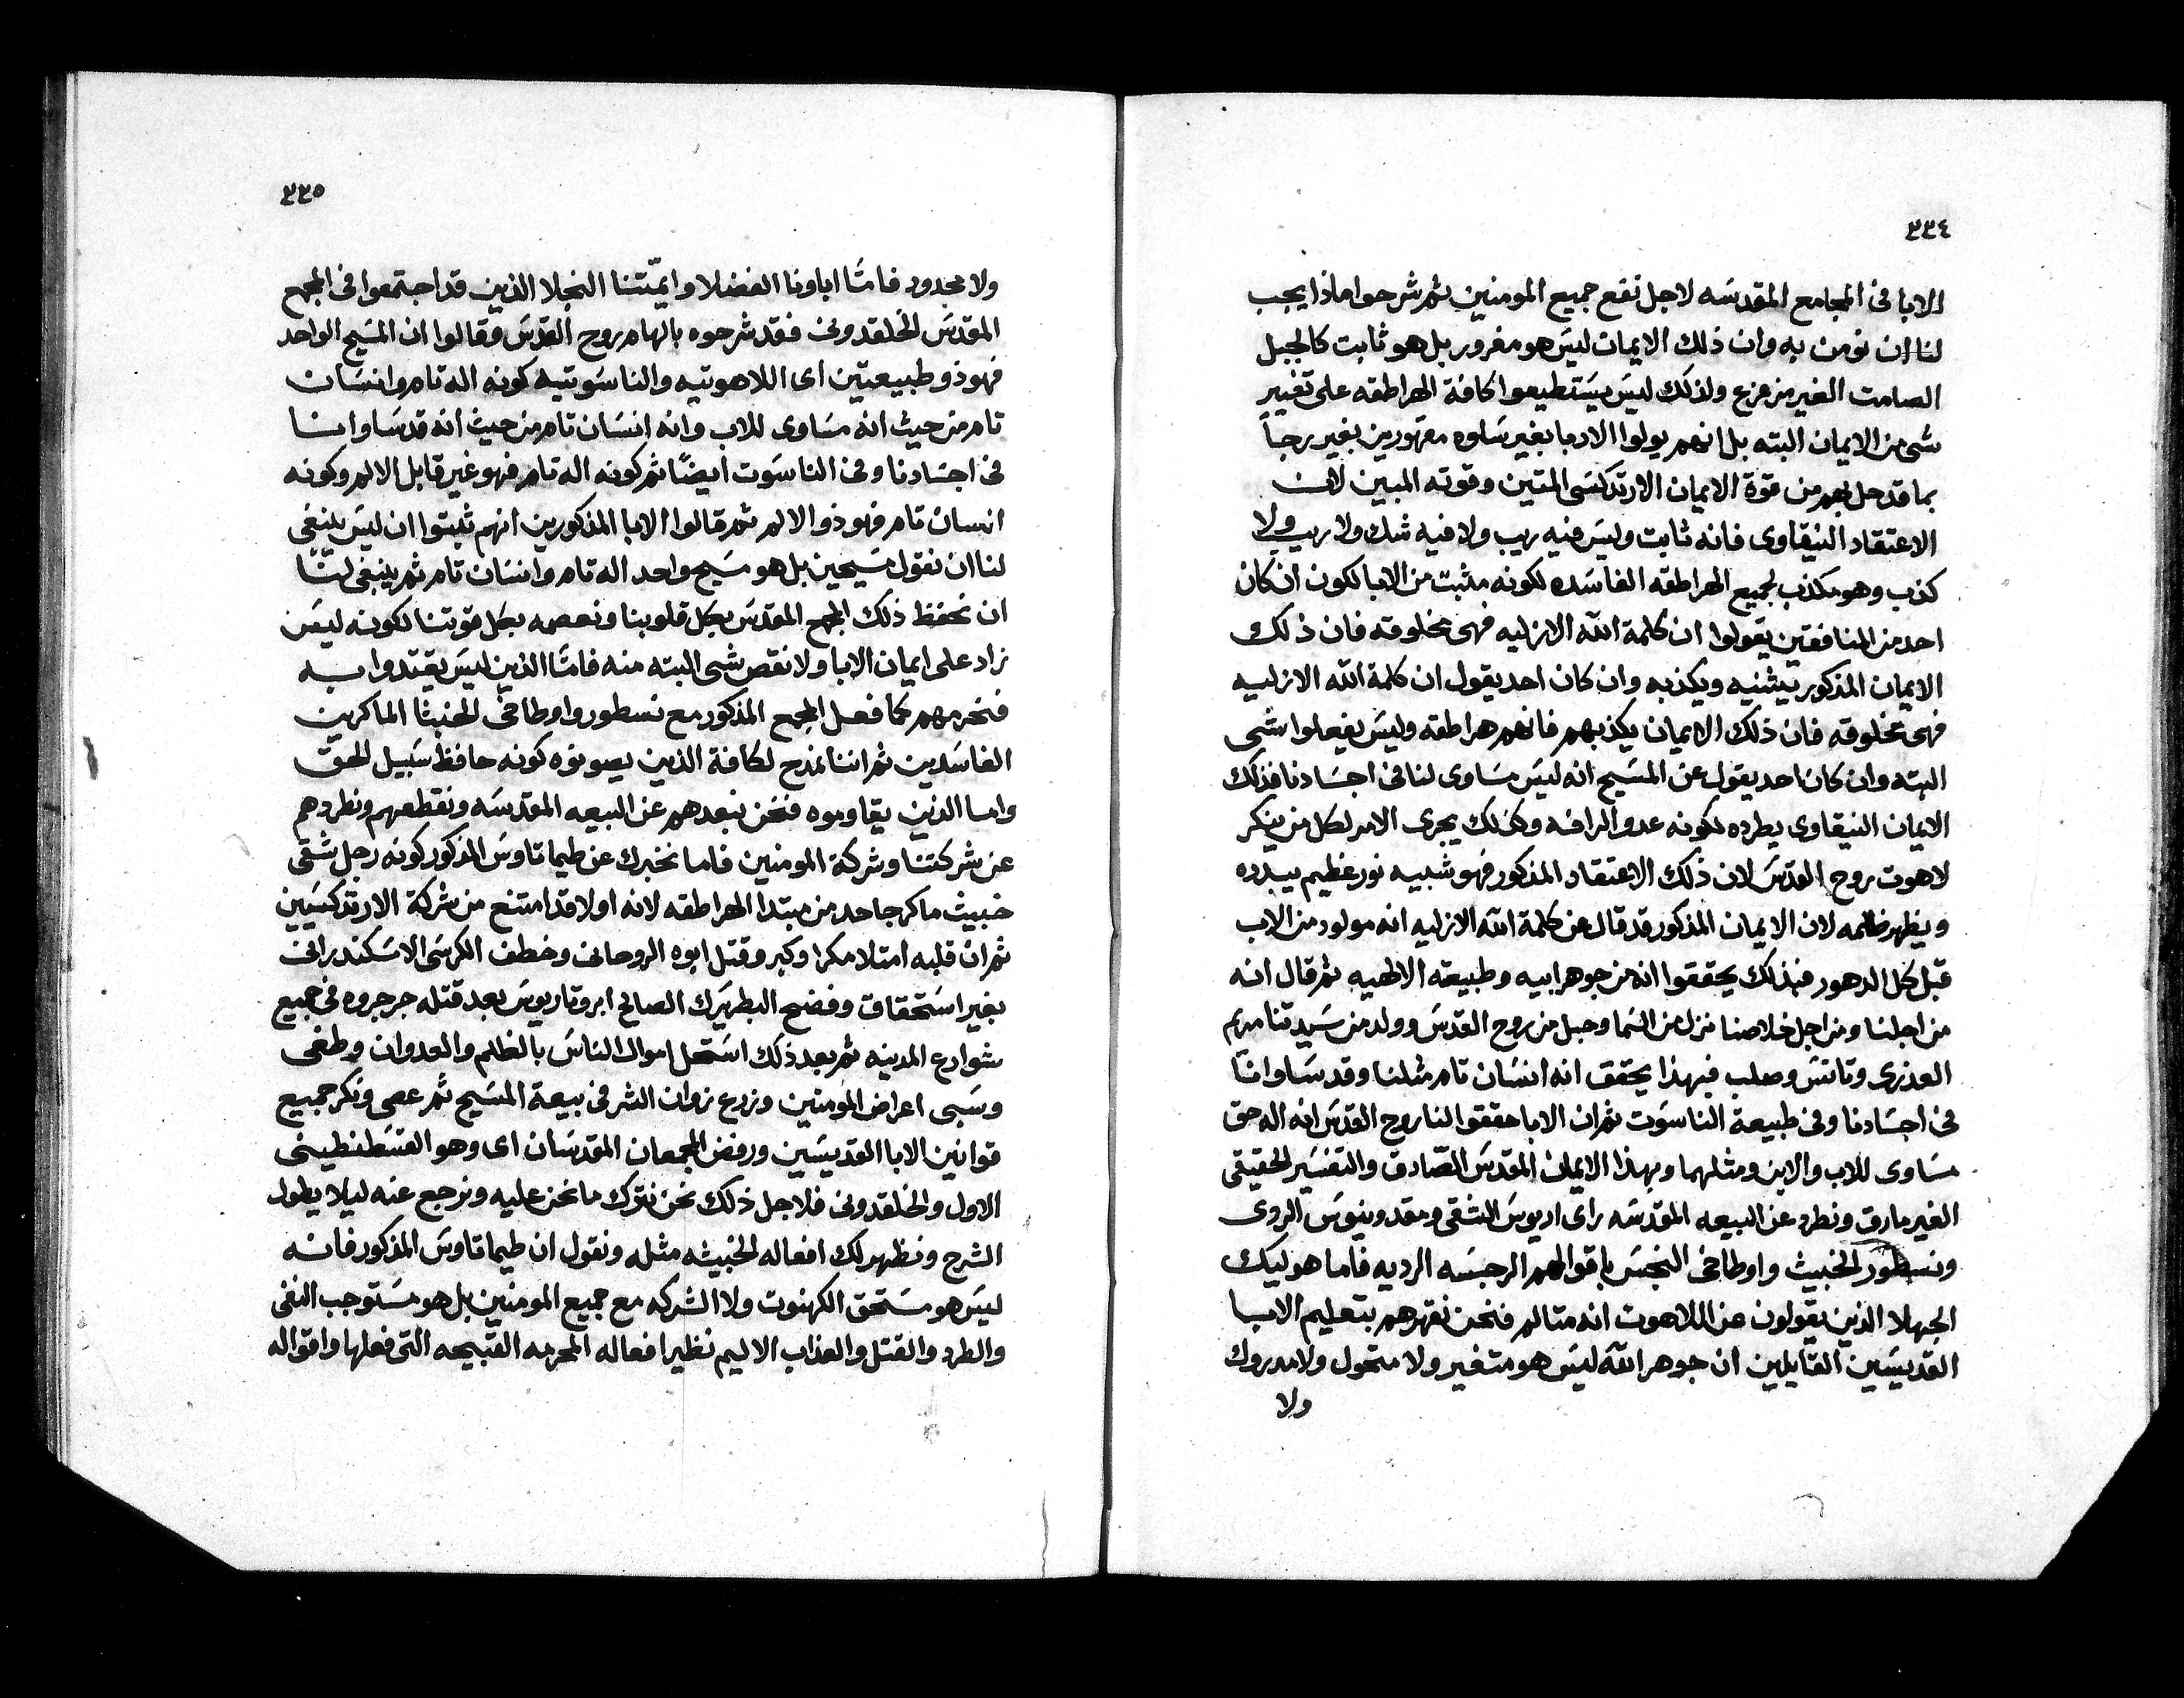 ٣٣٤
الابا فى المجامع المقدسه لاجل نفع جميع المومنين ثم شرحوا ماذا يجب
لنا ان نومن به وان ذلك الايمان ليس هو مغرور بل هو ثابت كالجبل
الصامت الغير مزعزع ولذلك ليس يستطيعوا كافة الهراطقه على تغيير
شى من الايمان البته بل انهم يولوا الادبا بغير سلوه مقهورين بغير رجاً
بما قد حل بهم من قوة الايمان الارتدكسى المتين وقوته المبين لان
الاعتقاد النيقاوى فانه ثابت وليس فيه ريب ولا فيه شك ولا ريب ولا
كذب وهو مكذب لجميع الهراطقه الفاسده لكونه مثبت من الابا لكون ان كان
احد من المنافقين يقولوا ان كلمة الله الازليه فهى مخلوقه فان ذلك
الايمان المذكور يثنيه ويكذبه وان كان احد يقول ان كلمة الله الازليه
فهى مخلوقه فان ذلك الايمان يكذبهم فانهم هراطقه وليس يفعلوا شى
البته وان كان احد يقول عن المسيح انه ليس مساوى لنا فى اجسادنا فذلك
الايمان النيقاوى يطرده لكونه عدو الرافه وكذلك يجرى الامر لكل من ينكر
لاهوت روح القدس لان ذلك الاعتقاد المذكور فهو شبيه نور عظيم يبدده
ويظهر ظلمه لان الايمان المذكور قد قال عن كلمة الله الازليه انه مولود من الاب
قبل كل الدهور فبذلك يحققوا انه من جوهر ابيه وطبيعته الالهيه ثم قال انه
من اجلنا ومن اجل خلاصنا نزل من السما وحبل من روح القدس وولد من سيدتنا مريم
العذرى وتانس وصلب فبهذا يحقق انه انسان تام مثلنا وقد ساوانا
فى اجسادنا وفى طبيعة الناسوت ثم ان الابا حققوا لنا روح القدس انه اله حق
مساوى للاب والابن ومثلهما وبهذا الايمان المقدس الصّادق والتفسير الحقيقى
الغير مارق ونطرد عن البيعه المقدسه راى اريوس الشقى ومقدونيوس الردى
ونسطور الخبيث واوطاخى النجس باقوالهم الرجسه الرديه فاما هوليك
الجهلا الذين يقولون عن اللاهوت انه متالم فنحن نقهرهم بتعليم الابا
القديسين القايلين ان جوهر الله ليس هو متغير ولا متحول ولا مدروك
ولا
٣٣٥
ولا محدود فامّا اباونا الفضلا وايمّتنا النجلا الذين قد اجتمعوا فى المجمع
المقدس الخلقدونى فقد شرحوه بالهام روح القدس وقالوا ان المسيح الواحد
فهو ذو طبيعتين اى اللاهوتيه والناسوتيه كونه اله تام وانسان
تام من حيث انه مساوى للاب وانه انسان تام من حيث انه قد ساوانا
فى اجسادنا وفى الناسوت ايضًا ثم كونه اله تام فهو غير قابل الالم وكونه
انسان تام فهو ذو الالم ثم قالوا الابا المذكورين انهم ثبتوا ان ليس ينبغى
لنا ان نقول مسيحين بل هو مسيح واحد اله تام وانسان تام ثم ينبغى لنا
ان نحفظ ذلك المجمع المقدس بكل قلوبنا ونعصمه بكل قوتنا لكونه ليس
زاد على ايمان الابا ولا نقص شى البته منه فامّا الذين ليس يقتدوا به
فنحرمهم كما فعل المجمع المذكور مع نسطور واوطاخى الخبثا الماكرين
الفاسدين ثم اننا نمدح لكافة الذين يصونوه كونه حافظ سبيل الحق
واما الذين يقاوموه فنحن نبعدهم عن البيعه المقدسه ونقطعهم ونطردهم
عن شركتنا وشركة المومنين فاما نخبرك عن طيماتاوس المذكور كونه رجل شقى
خبيث ماكر جاحد من مبتدا الهراطقه لانه اولا قد امتنع من شركة الارتدكسيين
ثم ان قلبه امتلا مكرا وكبر وقتل ابوه الروحانى وخطف الكرسى الاسكندرانى
بغير استحقاق وفضح البطريرك الصالح ابروتاريوس بعد قتله جرجروه فى جميع
شوارع المدينه ثم بعد ذلك استحل اموال الناس بالظلم والعدوان وطغى
وسبى اعراض المومنين وزرع زوان الشر فى بيعة المسيح ثم عصى ونكر جميع
قوانين الابا القديسين ورفض المجمعان المقدسان اى وهو القسطنطينى
الاول والخلقدونى فلاجل ذلك نحن نترك ما نحن عليه ونرجع عنه ليلا يطول
الشرح ونظهر لك افعاله الخبيثه مثله ونقول ان طيماتاوس المذكور فانه
ليس هو مستحق الكهنوت ولا الشركه مع جميع المومنين بل هو مستوجب النفى
والطرد والقتل والعذاب الاليم نظير افعاله المحرمه القبيحه التى فعلها واقواله